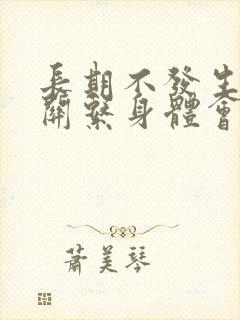 長期不發生
關繫身體會
蕭美琴